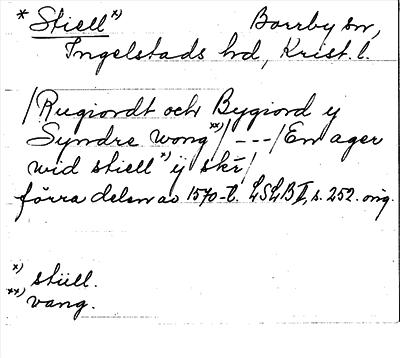 * Stiell *) Borrby sn,
Ingelstads hd, Krist. l.
/Rugiordt och Bygiord y
Syndre wong **)/ --- /En ager
wid stiell *) ÿ skr̄/
förra delen av 1570-t. LSLB II, s. 252. orig.
*) stiell.
**) vang.